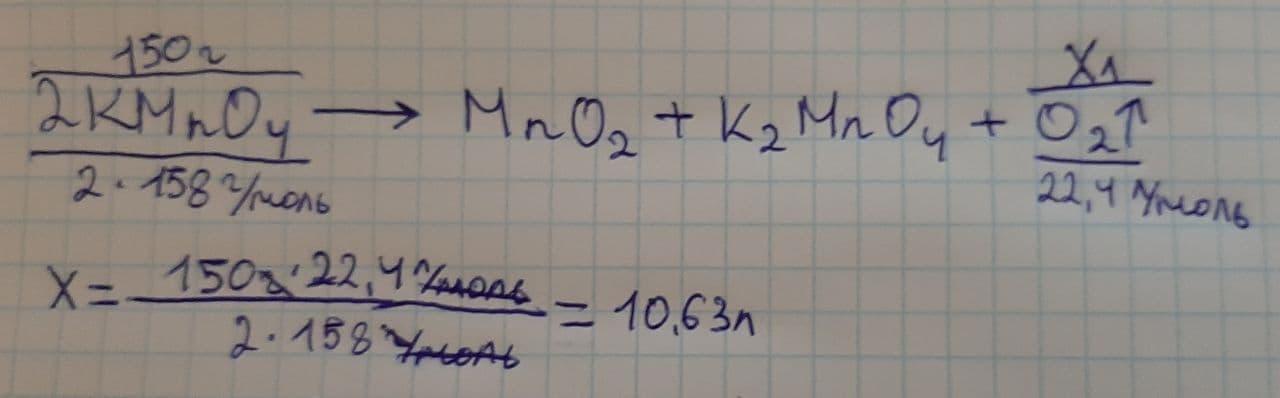 150г X1
2KMnO₄ → MnO₂ + K₂MnO₄ + O₂↑
2·158 г/моль 22,4 л/моль
X = 150г·22,4 л/моль / 2·158 г/моль = 10,63л